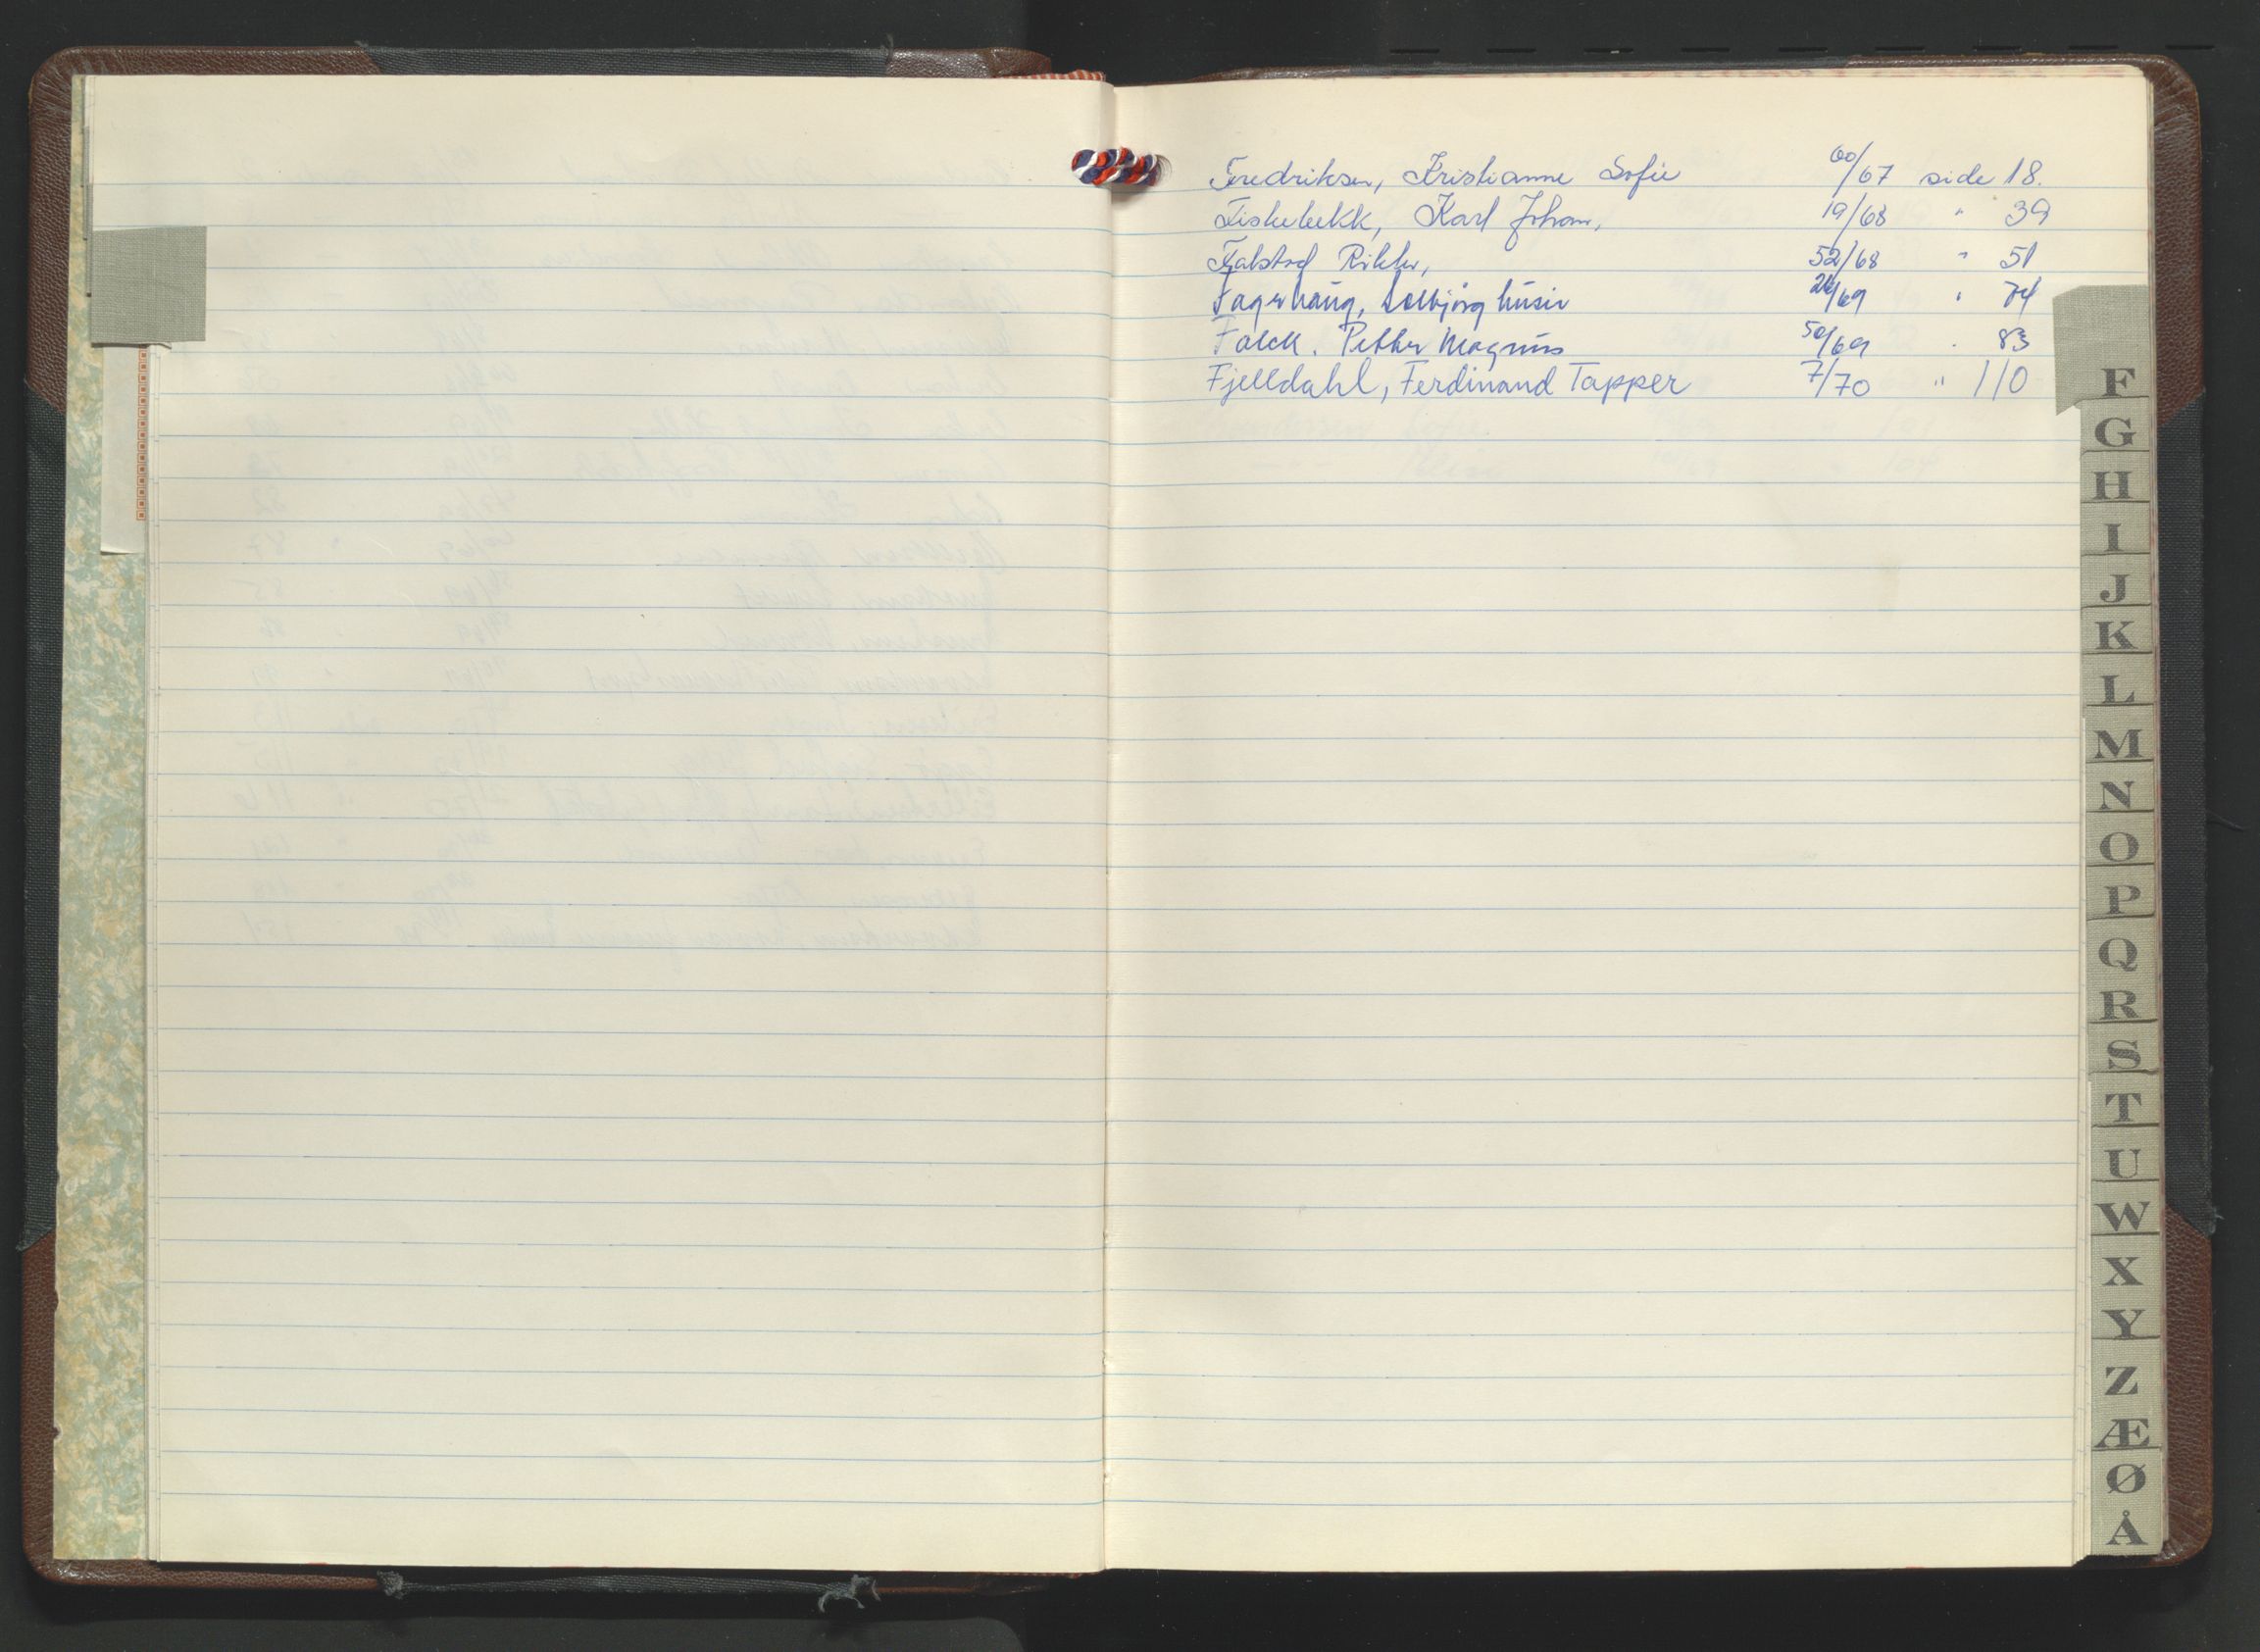 Fredriksen, Kristianne Sofie 60/67 side 18.
Fiskebekk, Karl Johan, 19/68 " 39
Falstad Rikke, 52/68 " 51
Fagerhaug, Solbjørg 24/69 " 74
Falck. Petter Magnus 50/69 " 83
Fjelldahl, Ferdinand Tapper 7/70 " 110
F
G
H
I
J
K
L
M
N
O
P
Q
R
S
T
U
W
X
Y
Z
Æ
Ø
Å